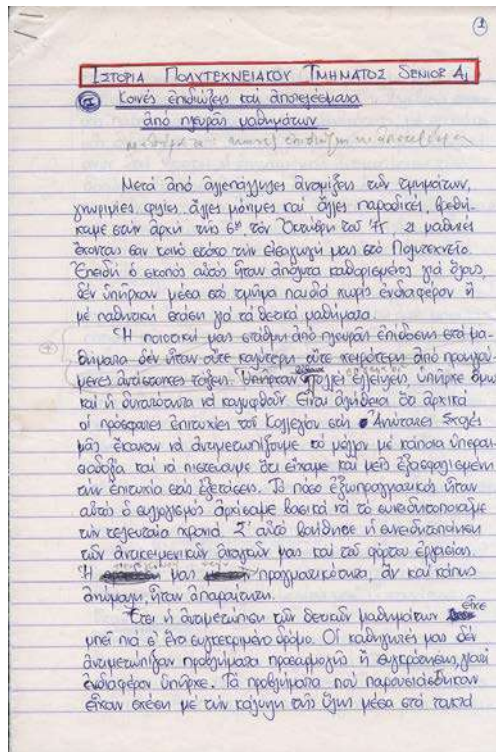 1
ΙΣΤΟΡΙΑ ΠΟΛΥΤΕΧΝΕΙΑΚΟΥ ΤΜΗΜΑΤΟΣ SENIOR A1
Κοινές ἐπιδιώξεις καί ἀποτελέσματα
ἀπό πλευρᾶς μαθημάτων
Μετά ἀπό ἀλλεπάλληλες ἀναμίξεις τῶν τμημάτων,
γνωριμίες, φιλίες, ἄλλες μόνιμες καί ἄλλες παροδικές, βρεθή-
καμε στήν ἀρχή τῆς 6ης τόν Ὀκτώβρη τοῦ 21 μαθητές
ἔχοντας σαν κοινό στόχο τήν εἰσαγωγή μας στό Πολυτεχνεῖο.
Ἐπειδή ὁ σκοπός αὐτός ἦταν ἀπόλυτα καθορισμένος γιά ὅλους,
δέν ὑπῆρχαν μέσα στό τμῆμα παιδιά χωρίς ἐνδιαφέρον ἤ
μέ παθητική στάση γιά τά θετικά μαθήματα.
Ἡ ποιοτική μας στάθμη ἀπό πλευρᾶς ἐπίδοσης στά μα-
θήματα δέν ἦταν οὔτε καλύτερη οὔτε χειρότερη ἀπό προηγού-
μενες ἀντίστοιχες τάξεις. Ὑπῆρχαν ἐλλείψεις, ὑπῆρχε ὅμως
καί ἡ δυνατότητα νά καλυφθοῦν. Εἶναι ἀλήθεια ὅτι ἀρχικά
οἱ πρόσφατες ἐπιτυχίες τοῦ Κολλεγίου στίς Ἀνώτατες Σχολές
μᾶς ἔκαναν νά ἀντιμετωπίζουμε τό μέλλον μέ κάποια ὑπεραι-
σιοδοξία καί νά πιστεύουμε ὅτι εἴχαμε καί μεῖς ἐξασφαλισμένη
τήν ἐπιτυχία στίς ἐξετάσεις. Τό πόσο ἐξωπραγματικός ἦταν
αὐτός ὁ συλλογισμός ἀρχίσαμε βασικά νά τό συνειδητοποιοῦμε
τήν τελευταία χρονιά. Σ' αὐτό βοήθησε ἡ συνειδητοποίηση
τῶν ἀντικειμενικῶν ἀναγκῶν μας καί τοῦ φόρτου ἐργασίας.
Ἡ μας πραγματικότητα, ἄν καί κάπως
ἀπότομη, ἦταν ἀπαραίτητη.
Ἔτσι ἡ ἀντιμετώπιση τῶν θετικῶν μαθημάτων εἶχε
μπεῖ πιά σ' ἕνα συγκεκριμένο δρόμο. Οἱ καθηγητές μας δέν
ἀντιμετώπιζαν προβλήματα προσαρμογῆς ἤ συγκέντρωσης, γιατί
ἐνδιαφέρον ὑπῆρχε. Τά προβλήματα πού παρουσιάσθηκαν
εἶχαν σχέση μέ τήν κάλυψη τῆς ὕλης μέσα στά τακτά